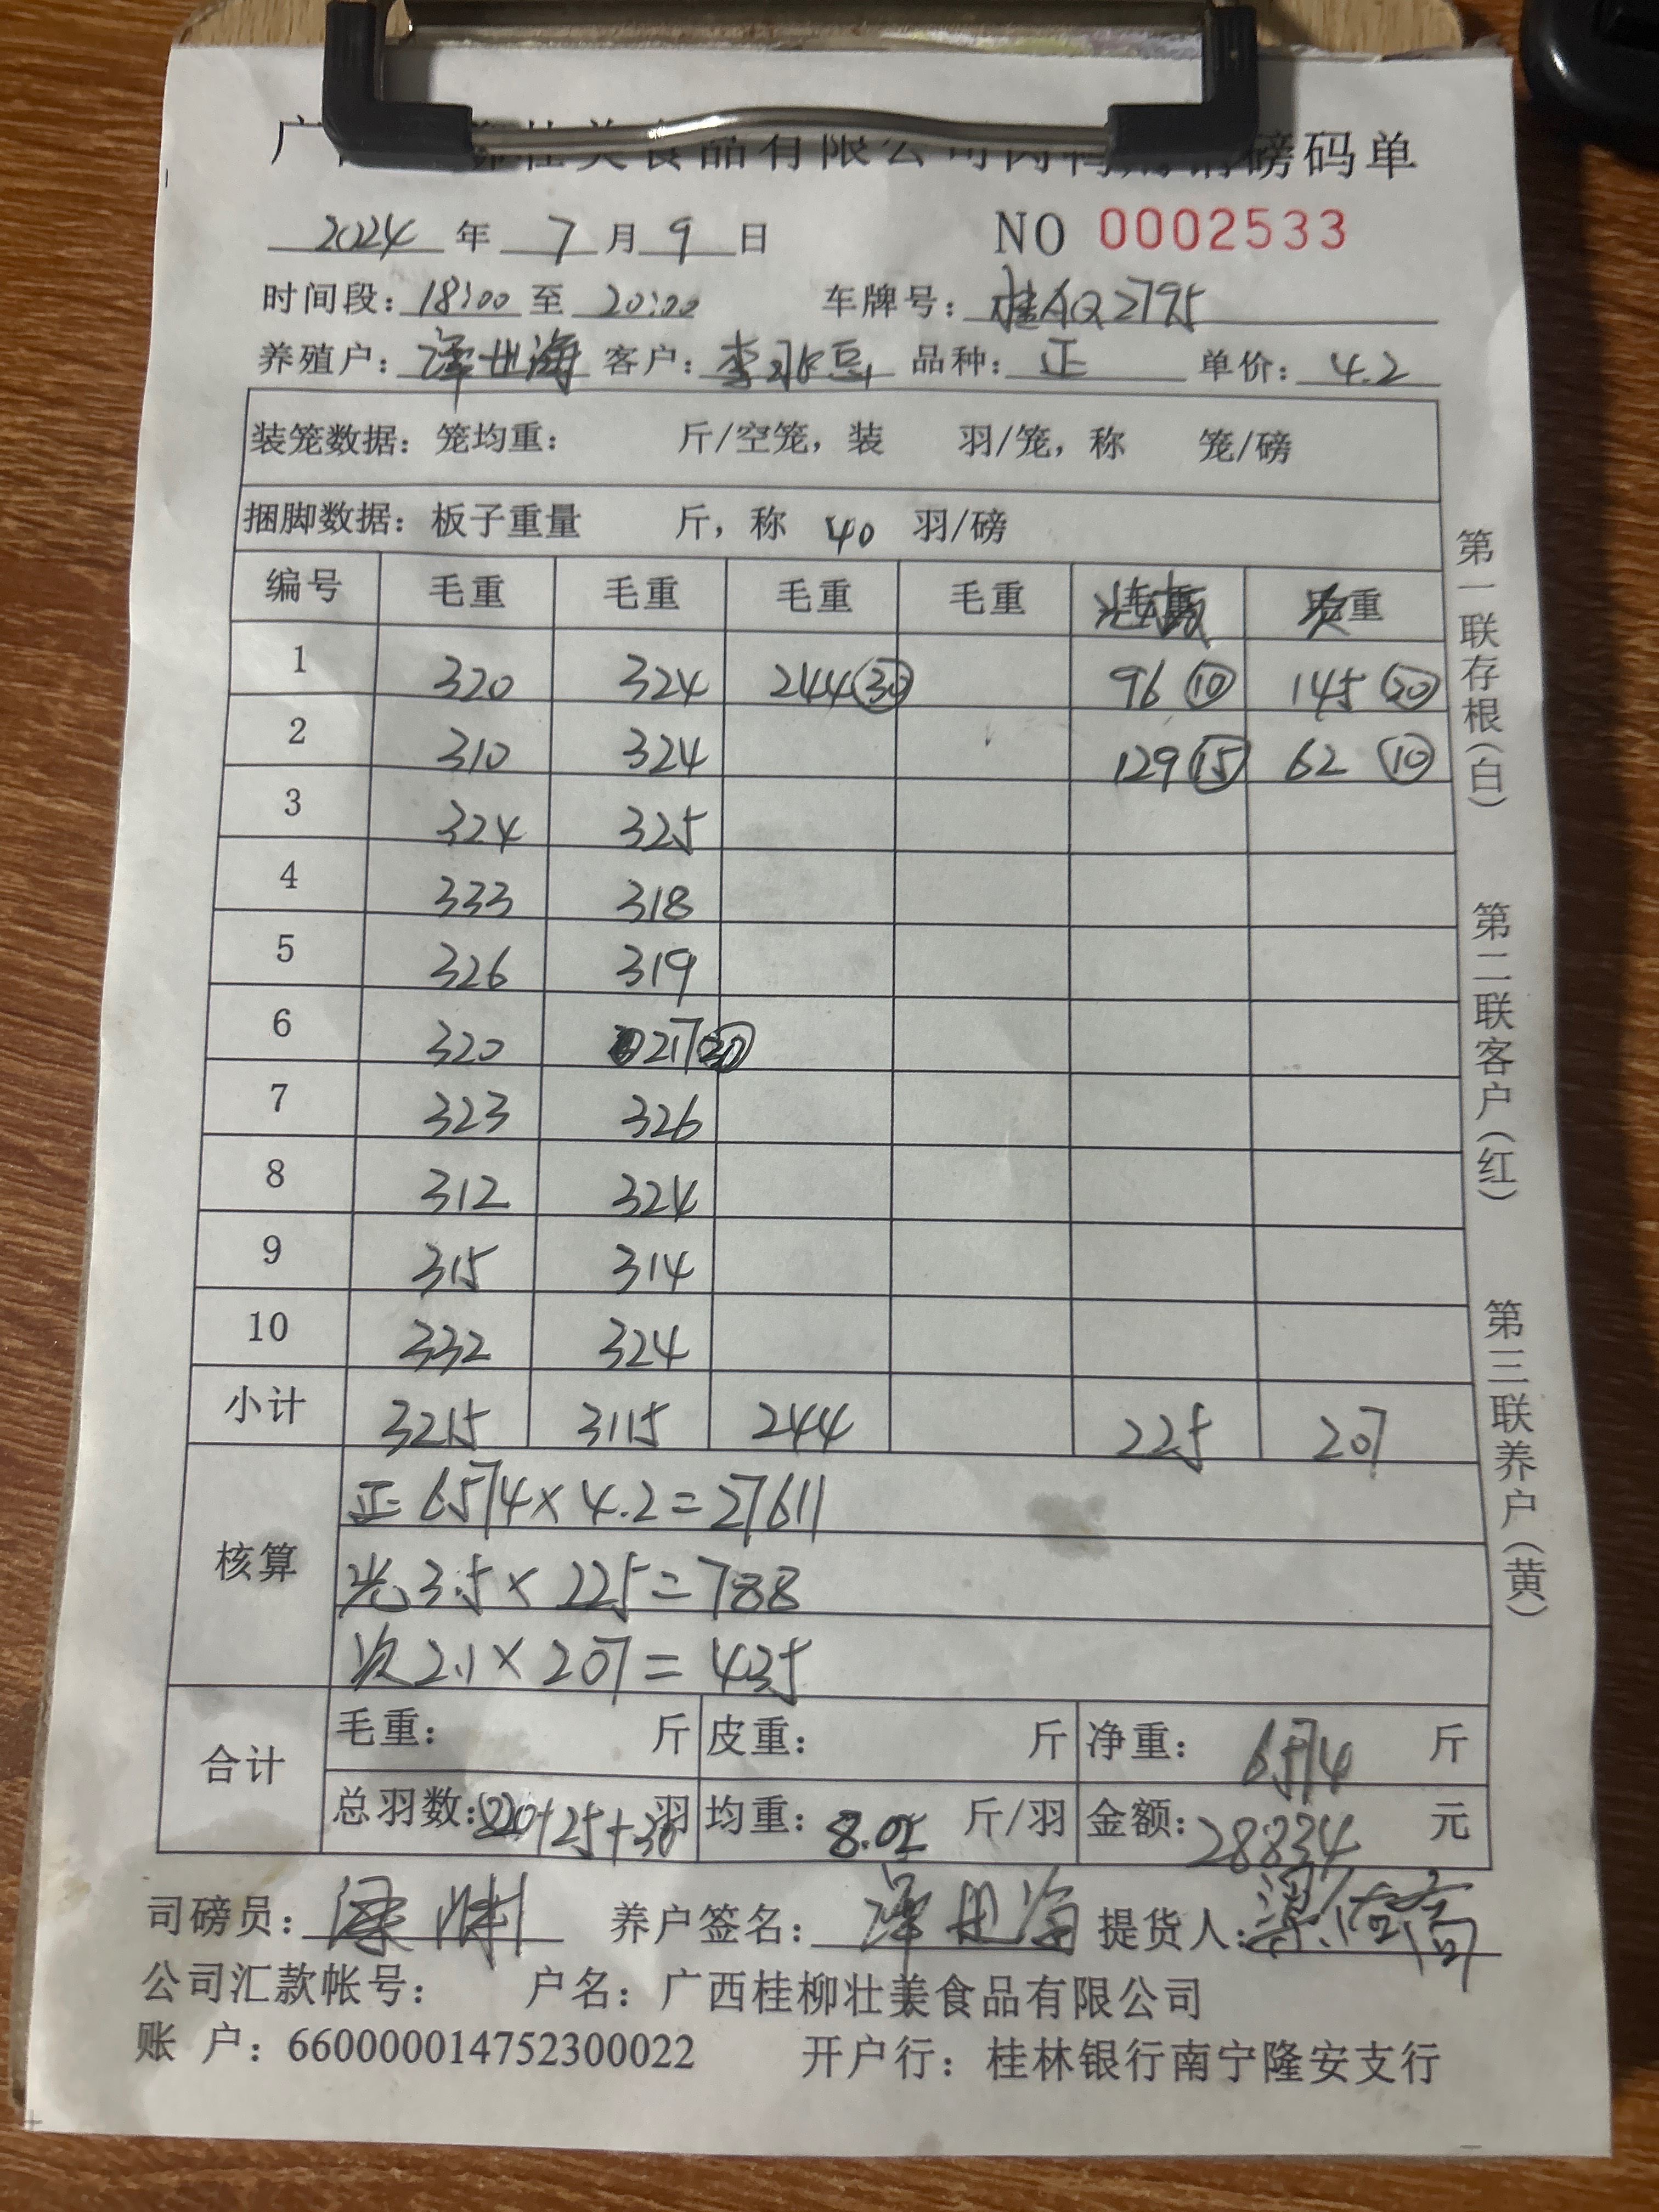 广 柳壮美食品有限公司肉鸭 销磅码单
2024 年 7 月 9 日 NO 0002533
时间段: 18:00 至 20:00 车牌号: 桂AQ2795
养殖户: 海 客户: 李 品种: 正 单价: 4.2
装笼数据: 笼均重: 斤/空笼, 装 羽/笼, 称 笼/磅
捆脚数据: 板子重量 斤, 称 40 羽/磅
编号 毛重 毛重 毛重 毛重 重
1 320 324 244 30 96 10 145 20
2 310 324 129 15 62 10
3 324 325
4 333 318
5 326 319
6 320 217
7 323 326
8 312 324
9 315 314
10 332 324
小计 3215 3115 244 225 207
核算
正 6574×4.2=27611
光 3.5×225=788
次 2.1×207=435
合计 毛重: 斤 皮重: 斤 净重: 6574 斤
总羽数: 820+25+30 羽 均重: 8.02 斤/羽 金额: 28834 元
司磅员: 养户签名: 提货人:
公司汇款帐号: 户名: 广西桂柳壮美食品有限公司
账 户: 660000014752300022 开户行: 桂林银行南宁隆安支行
第一联存根(白)
第二联客户(红)
第三联养户(黄)